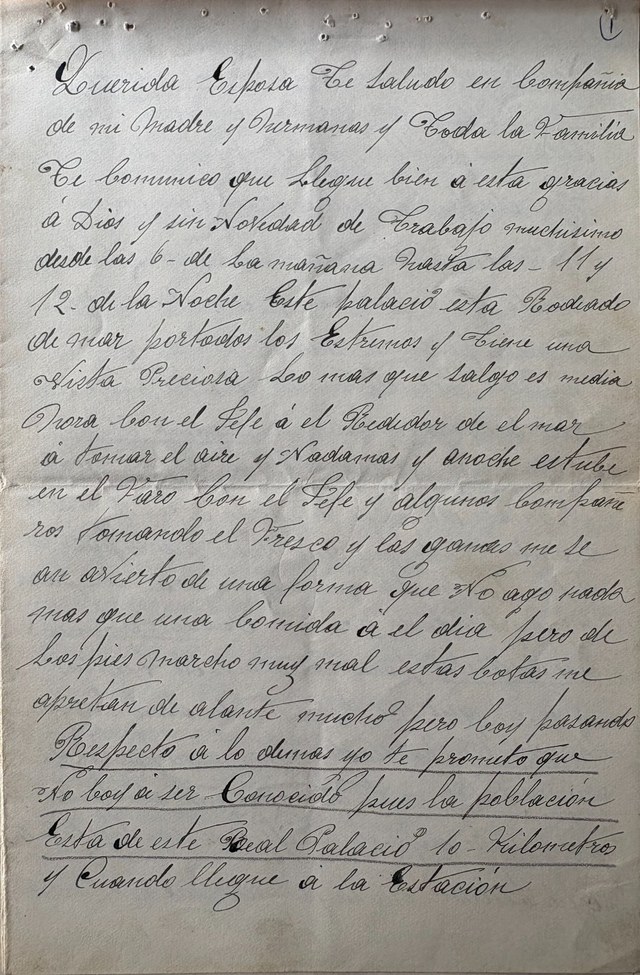 1
Querida Esposa Te saludo en Compañia
de mi Madre y Hermanas y Toda la Familia
Te Comunico que Llegue bien á esta gracias
á Dios y sin Novedad de Trabajo muchisimo
desde las 6 - de La mañana hasta las - 11 y
12 - de la Noche Este palacio esta Rodeado
de mar portodos los Estremos y Tiene una
Vista Preciosa Lo mas que salgo es media
hora Con el Jefe á el Rededor de el mar
á tomar el aire y Nadamas y anoche estube
en el Faro Con el Jefe y algunos Compañe
ros tomando el Fresco y las ganas me se
an avierto de una forma que No ago nada
mas que una Comida á el dia pero de
Los pies marcho muy mal estas botas me
apretan de alante mucho pero boy pasando
Respecto á lo demas yo te prometo que
No boy á ser Conocido pues la población
Esta de este Real Palacio 10 - Kilometros
y Cuando llegue á la Estación